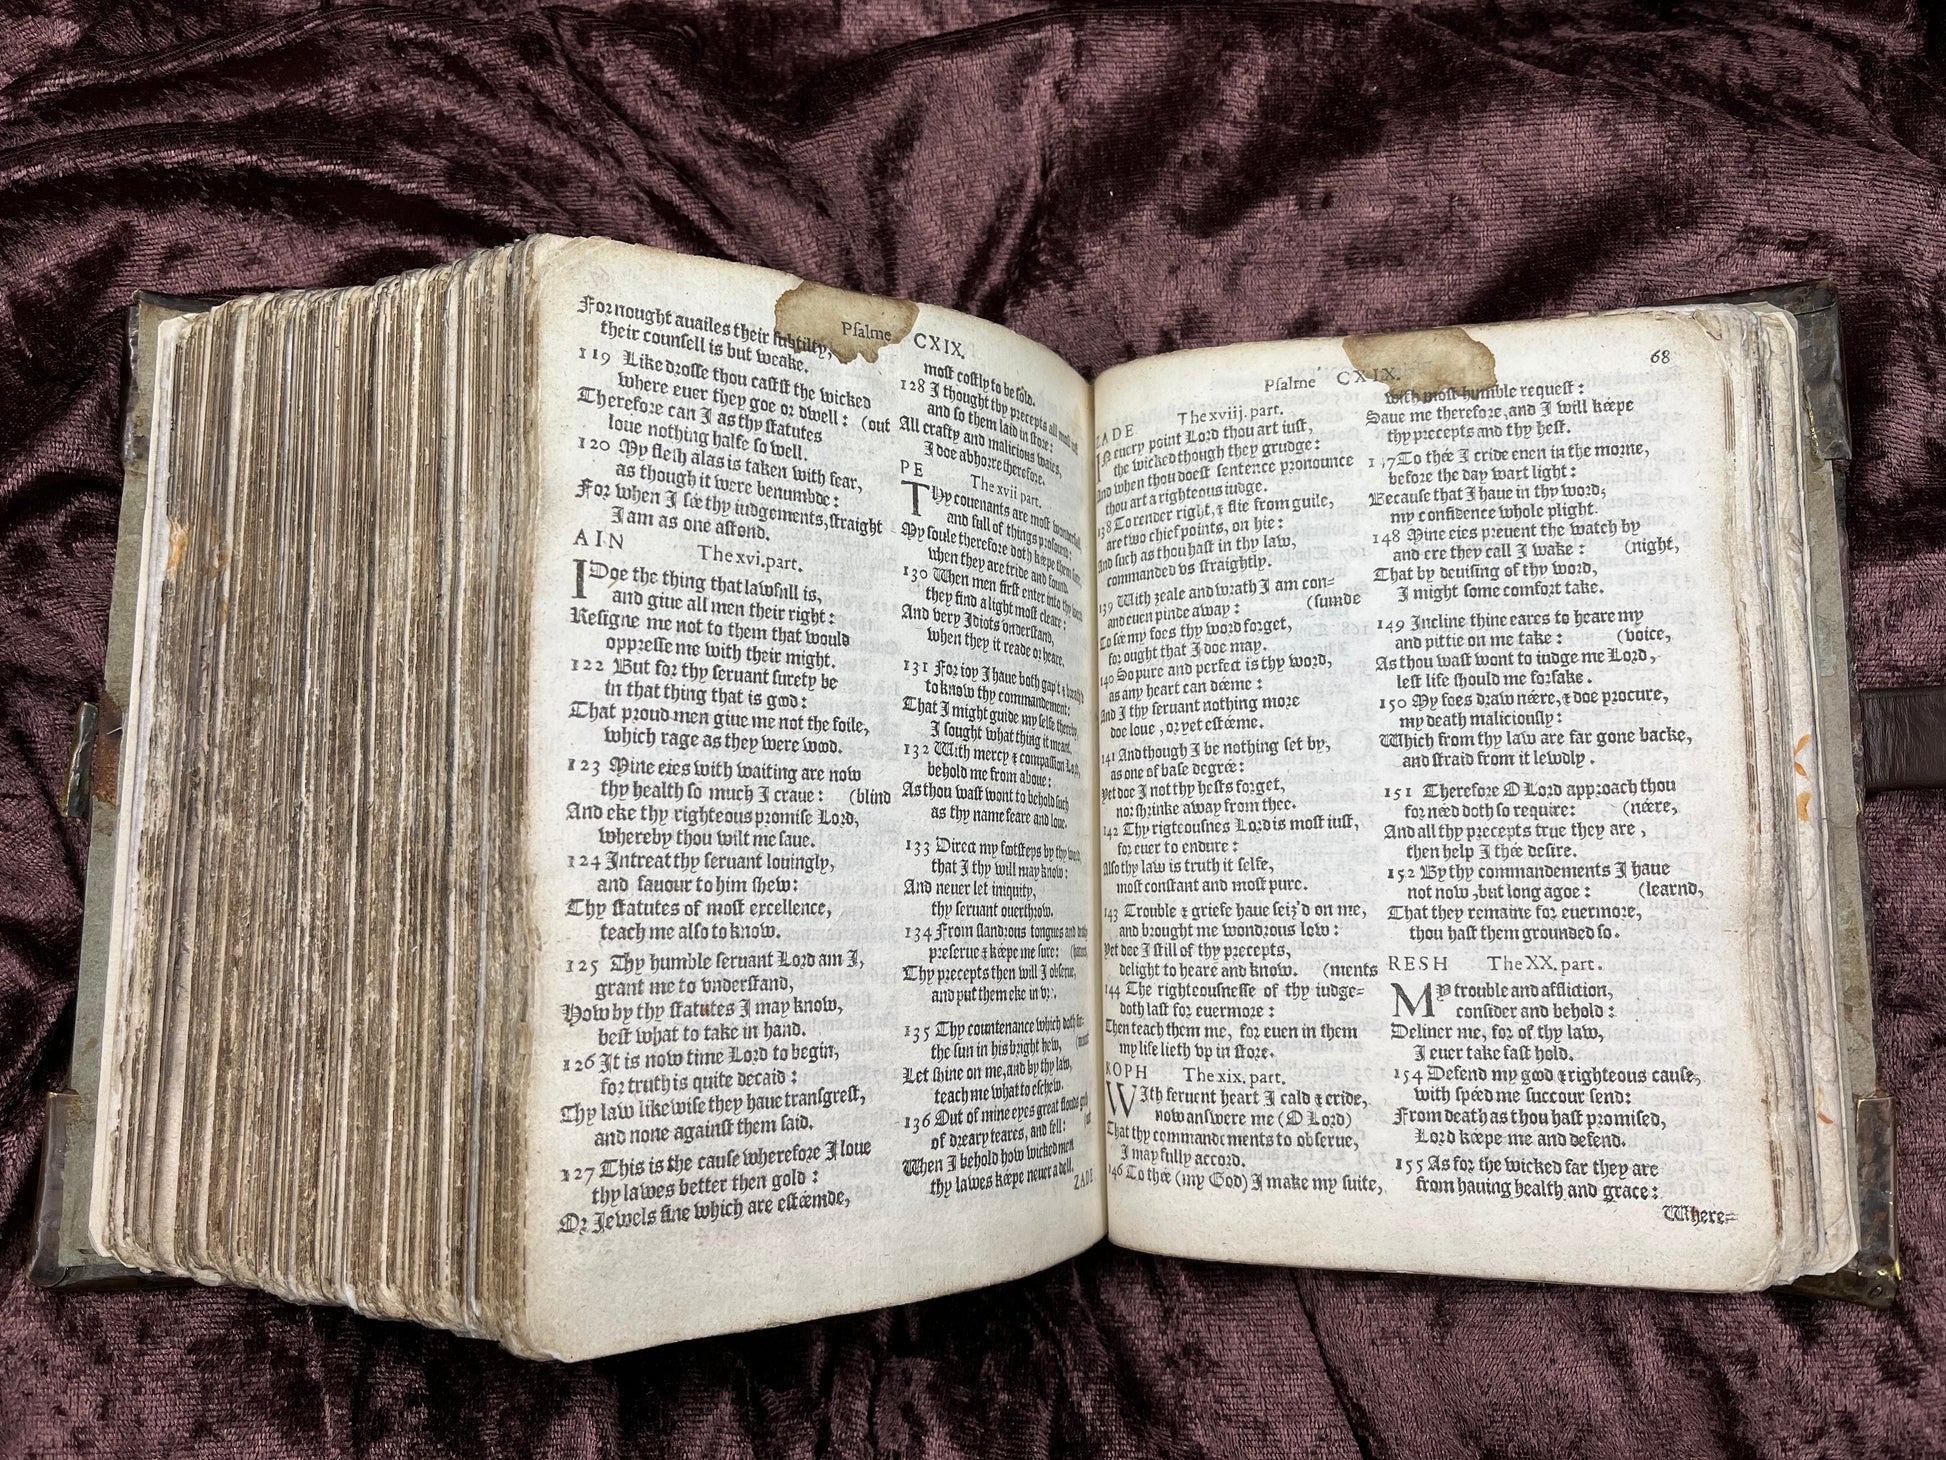 Psalme CXIX.
For nought auailes their subtilty,
their counsell is but weake.
119 Like drosse thou castst the wicked
where euer they goe or dwell: (out
Therefore can I as thy statutes
loue nothing halfe so well.
120 My flesh alas is taken with fear,
as though it were benumbde:
For when I sée thy iudgements, straight
I am as one astond.
AIN The xvi. part.
I Doe the thing that lawfull is,
and giue all men their right:
Resigne me not to them that would
oppresse me with their might.
122 But for thy seruant surety be
in that thing that is good:
That proud men giue me not the foile,
which rage as they were wood.
123 Mine eies with waiting are now
thy health so much I craue: (blind
And eke thy righteous promise Lord,
whereby thou wilt me saue.
124 Intreat thy seruant louingly,
and fauour to him shew:
Thy statutes of most excellence,
teach me also to know.
125 Thy humble seruant Lord am I,
grant me to vnderstand,
How by thy statutes I may know,
best what to take in hand.
126 It is now time Lord to begin,
for truth is quite decaid:
Thy law likewise they haue transgrest,
and none against them said.
127 This is the cause wherefore I loue
thy lawes better then gold:
Or Jewels fine which are estéemde,
most costly to be sold.
128 I thought thy precepts all
and so them laid in store:
All crafty and malicious waies,
I doe abhorre therefore.
PE The xvii part.
Thy couenants are most wonderfull,
and full of things profound:
My soule therefore doth kéepe them sure,
when they are tride and found.
130 When men first enter into thy
they find a light most cleare:
And very Idiots vnderstand,
when they it reade or heare.
131 For ioy I haue both gap't &
to know thy commandement:
That I might guide my selfe thereby,
I sought what thing it meant.
132 With mercy & compassion
behold me from aboue:
As thou wast wont to behold such
as thy name feare and loue.
133 Direct my footsteps by thy word,
that I thy will may know:
And neuer let iniquity,
thy seruant ouerthrow.
134 From slandrous tongues and
preserue & kéepe me sure:
Thy precepts then will I obserue,
and put them eke in
135 Thy countenance which doth
the sun in his bright hew,
Let shine on me, and by thy law,
teach me what to eschew.
136 Out of mine eyes great flouds
of dreary teares, and fell:
When I behold how wicked men
thy lawes kéepe neuer a dell.
ZADE
Psalme CXIX. 68
ZADE The xviij. part.
IN euery point Lord thou art iust,
the wicked though they grudge:
And when thou doest sentence pronounce
thou art a righteous iudge.
138 To render right, & flie from guile,
are two chief points, on hie:
And such as thou hast in thy law,
commanded vs straightly.
139 With zeale and wrath I am con-
and euen pinde away: (sumde
To sée my foes thy word forget,
for ought that I doe may.
140 So pure and perfect is thy word,
as any heart can déeme:
And I thy seruant nothing more
doe loue, or yet estéeme.
141 And though I be nothing set by,
as one of base degrée:
Yet doe I not thy hests forget,
nor shrinke away from thee.
142 Thy righteousnes Lord is most iust,
for euer to endure:
Also thy law is truth it selfe,
most constant and most pure.
143 Trouble & griefe haue seiz'd on me,
and brought me wondrous low:
Yet doe I still of thy precepts,
delight to heare and know. (ments
144 The righteousnesse of thy iudge=
doth last for euermore:
Then teach them me, for euen in them
my life lieth vp in store.
KOPH The xix. part.
WIth feruent heart I cald & cride,
now answere me (O Lord)
That thy commandements to obserue,
I may fully accord.
146 To thée (my God) I make my suite,
with most humble request:
Saue me therefore, and I will kéepe
thy precepts and thy hest.
147 To thée I cride euen in the morne,
before the day wart light:
Because that I haue in thy word,
my confidence whole plight.
148 Mine eies preuent the watch by
and ere they call I wake: (night,
That by deuising of thy word,
I might some comfort take.
149 Incline thine eares to heare my
and pittie on me take: (voice,
As thou wast wont to iudge me Lord,
lest life should me forsake.
150 My foes draw néere, & doe procure,
my death maliciously:
Which from thy law are far gone backe,
and straid from it lewdly.
151 Therefore O Lord approach thou
for néed doth so require: (néere,
And all thy precepts true they are,
then help I thée desire.
152 By thy commandements I haue
not now, but long agoe: (learnd,
That they remaine for euermore,
thou hast them grounded so.
RESH The XX. part.
MY trouble and affliction,
consider and behold:
Deliuer me, for of thy law,
I euer take fast hold.
154 Defend my good & righteous cause,
with spéed me succour send:
From death as thou hast promised,
Lord kéepe me and defend.
155 As for the wicked far they are
from hauing health and grace:
Where=